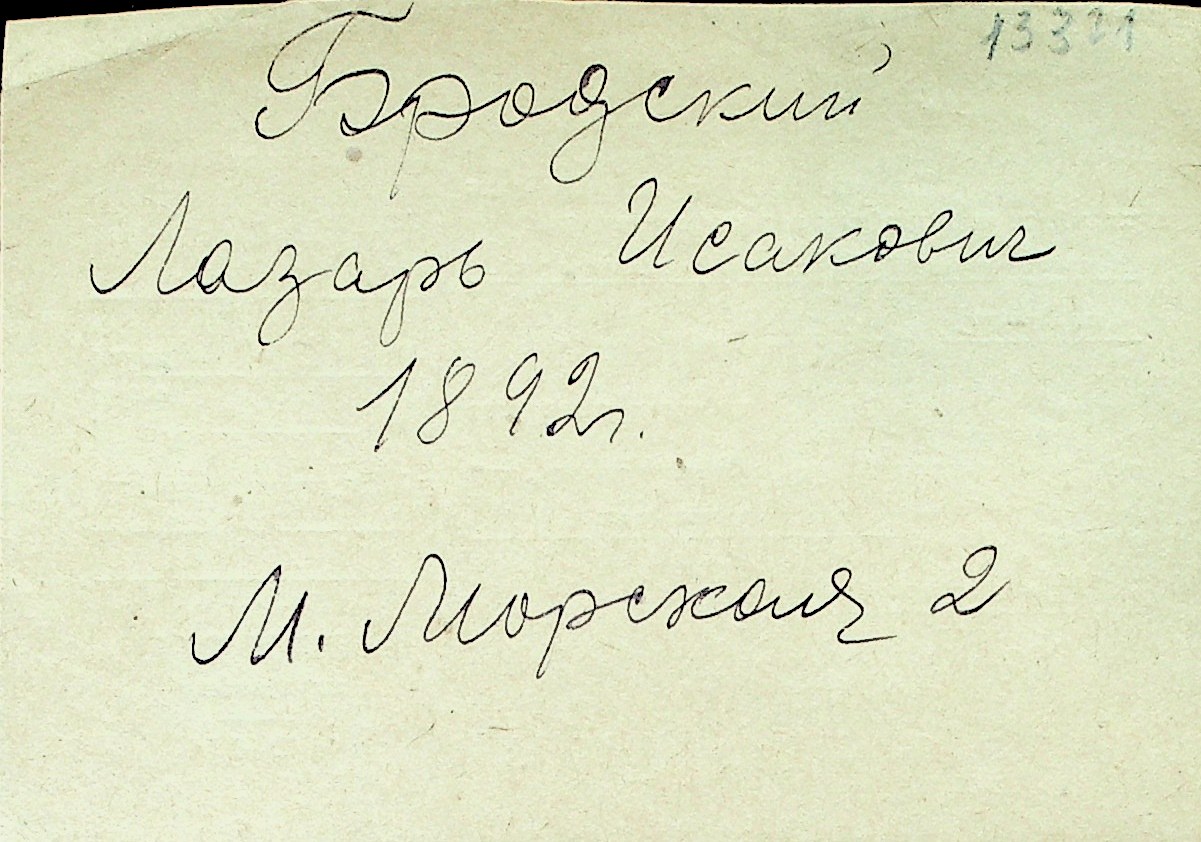 13321
Бродский
Лазарь Исакович
1892г.
М. Морская 2